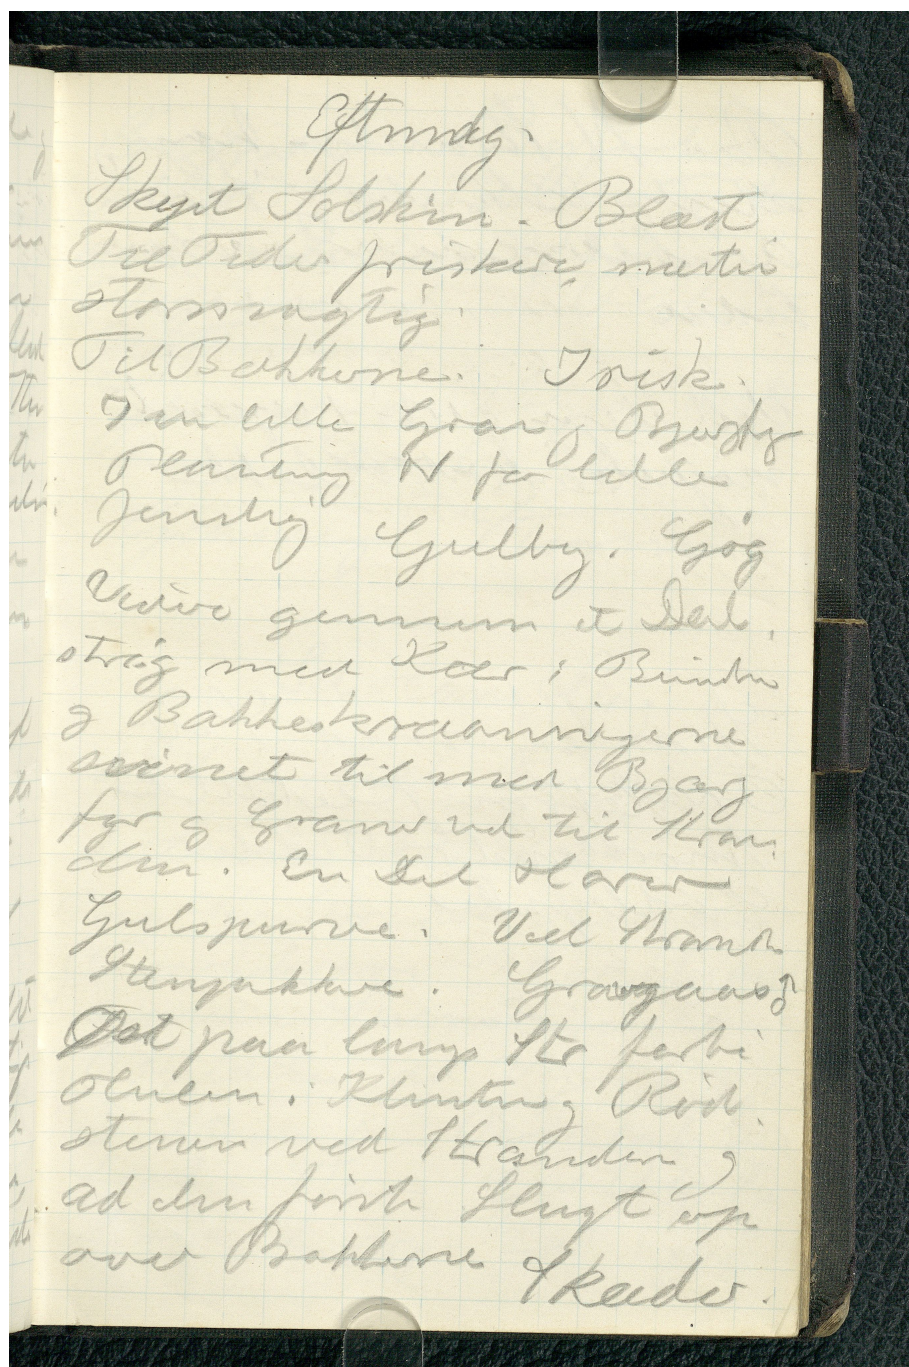 Eftmdg.
Skyet Solskin. Blæst
Til Tider friskere, næsten
stormagtig.
Til Bakkerne. Irisk.
I en lille Gran og Bjergfyr
Plantning N for lille
Gulbg. Gøg
Videre gennem et Dal-
strøg med Kær i Bunden
og Bakkeskraaningerne
til med Bjærg
fyr og Graner ned til Stran-
den. En Del Harer
Gulspurve. Ved Stranden
Stenpikkere. Gravgaas
paa lange Str forbi
Hulen i Klinten og Röd-
stenen ved Stranden og
ad den første Slugt op
over Bakkerne Skader.